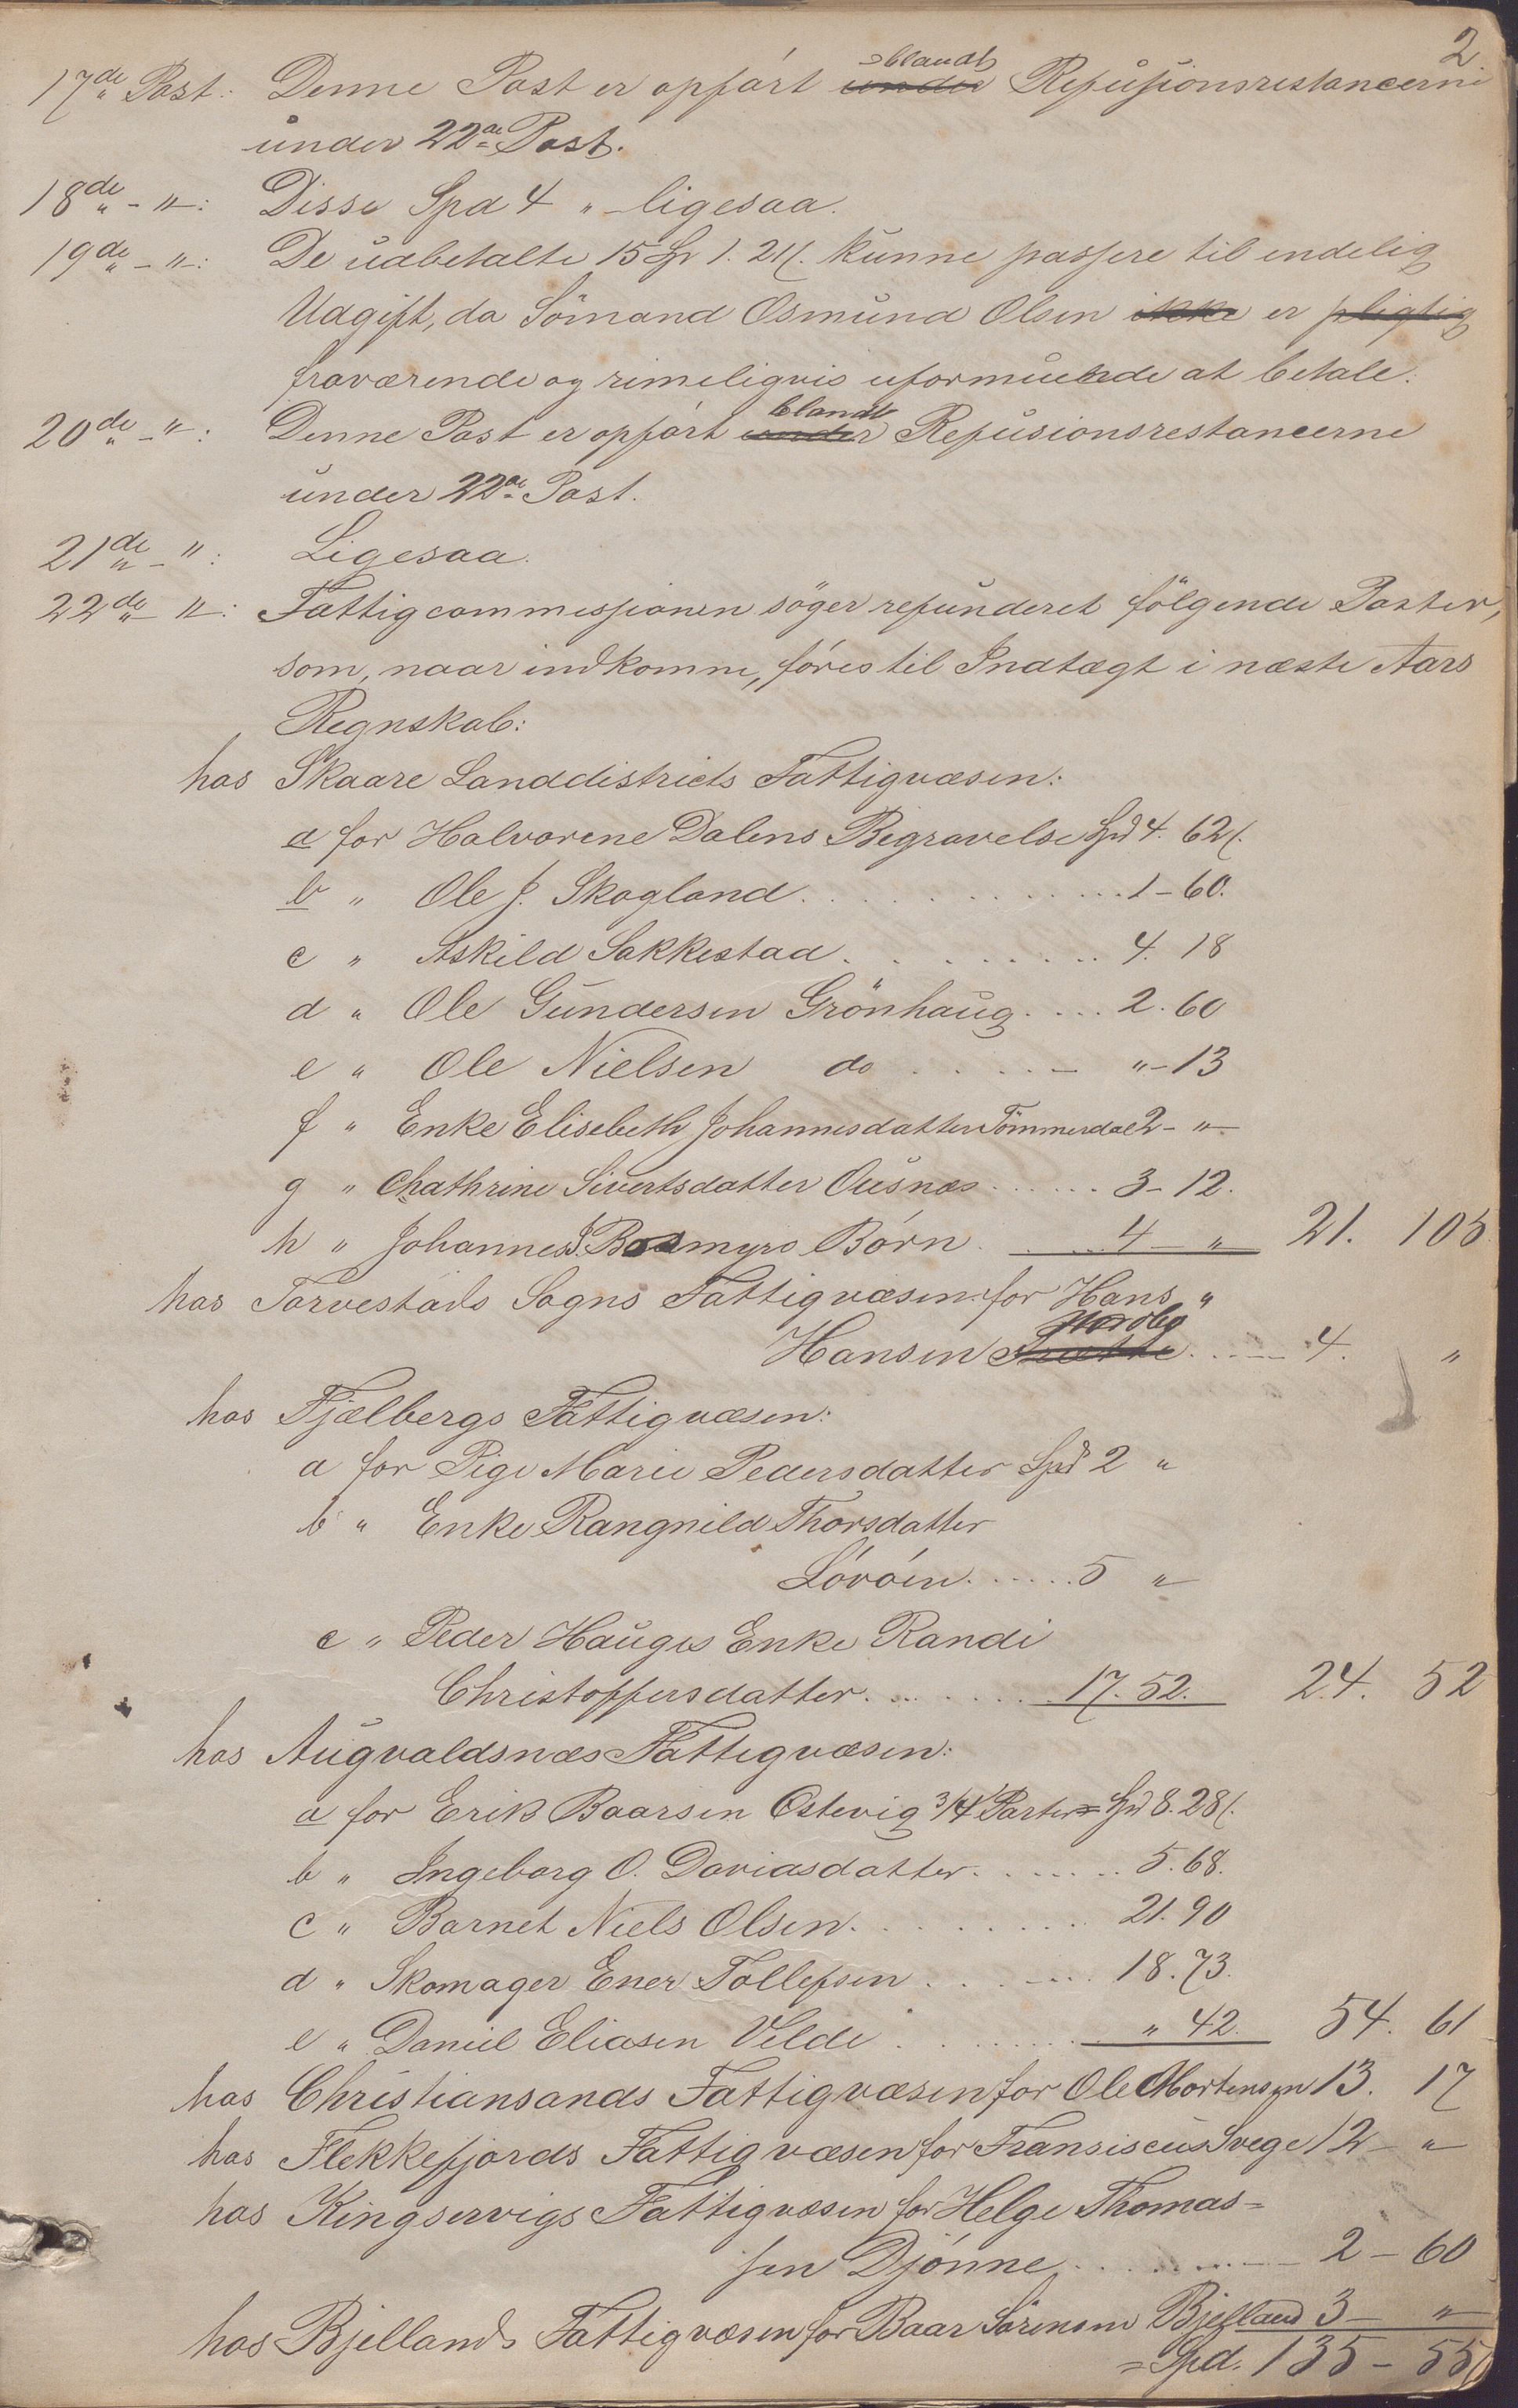 2
17de Post: Denne Post er opført ~~under~~ blandt Refusionsrestancerne
under 22de Post.
18de - " -: Disse Spd 4 " - ligesaa.
19de - " -: De udbetalte 15 Sp 1. 21ſ. kunne passere til endelig
Udgift, da Sömand Osmund Olsen ~~ikke~~ er ~~pligtig~~
fraværende og rimeligvis uformuende at betale.
20de - " -: Denne Post er opført ~~under~~ blandt Refusionsrestancerne
under 22de Post.
21de - " : Ligesaa.
22de - " -: Fattigcommissionen söger refunderet fölgende Poster,
som, naar indkomne, føres til Indtægt i næste Aars
Regnskab:
hos Skaare Landdistricts Fattigvæsen:
a for Halvorene Dalens Begravelse Spd 4. 62ſ.
b " Ole J. Skogland . . . . 1 - 60.
c " Askild Sakkestad . . . . 4. 18
d " Ole Gundersen Grönhaug . . . . 2. 60
e " Ole Nielsen do . . . . - " - 13
f " Enke Elisebeth Johannesdatter Tömmerdal 2 - " -
g " Chathrine Sivertsdatter Ousnes . . . . 3 - 12.
h " Johannes J. Bosmyrs Børn . . . . 4 - " 21. 105
hos Torvestads Sogns Fattigvæsen for Hans "
Hansen Nordbø . . . . 4. "
hos Fjælbergs Fattigvæsen:
a for Pige Marie Pedersdatter Spd 2 "
b " Enke Rangnild Thorsdatter
Lóvóen . . . . 5 "
c " Peder Hauges Enke Randi
Christoffersdatter . . . . 17. 52. 24. 52
hos Augvaldsnæs Fattigvæsen:
a for Erik Baarsen Ostevig 3/4 Parter = Spd 8. 28ſ.
b " Ingeborg O. Daviasdatter . . . . 5. 68.
c " Barnet Niels Olsen . . . . 21. 90
d " Skomager Ener Tollefsen . . . . 18. 73.
e " Daniel Eliasen Velde . . . . " 42. 54. 61
hos Christiansands Fattigvæsen for Ole Mortensen 13. 17
hos Flekkefjords Fattigvæsen for Fransiscus Svege 12 - "
hos Kingservigs Fattigvæsen for Helge Thomas=
sen Djønne . . . . 2 - 60
hos Bjellands Fattigvæsen for Baar Sörensen Bjelland 3 - "
= Spd. 135 - 55ſ